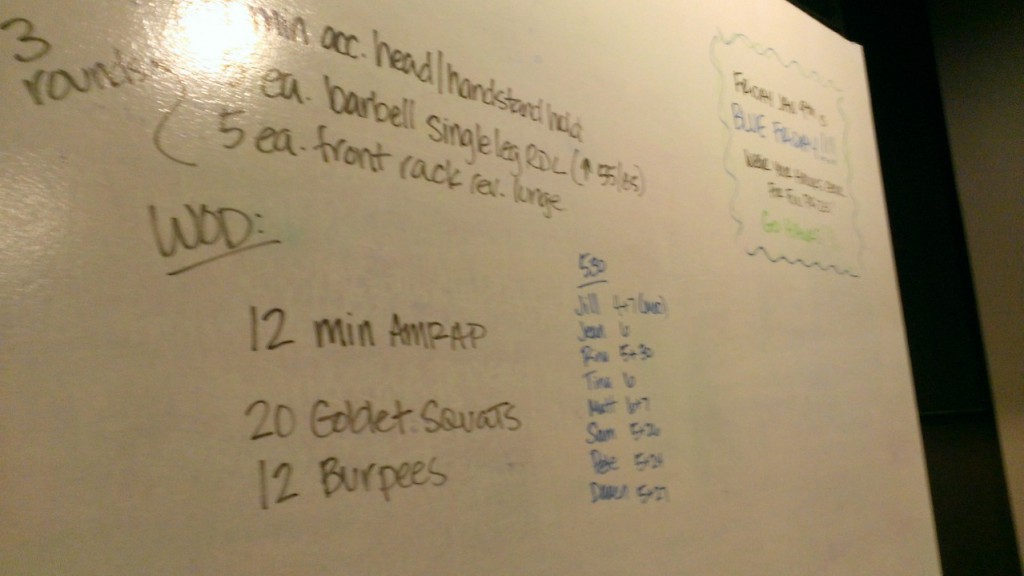 3 rounds
min acc. head/handstand hold
ea. barbell single leg RDL (↑ 55/65)
5 ea. front rack rev. lunge
WOD:
12 min AMRAP
20 Goblet Squats
12 Burpees
530
Jill 4+7
Jean 6
5+30
Tina 6
6+7
Sam 5+20
Pete 5+24
5+27
BLUE FRIDAY!!!
WEAR YOUR
Go